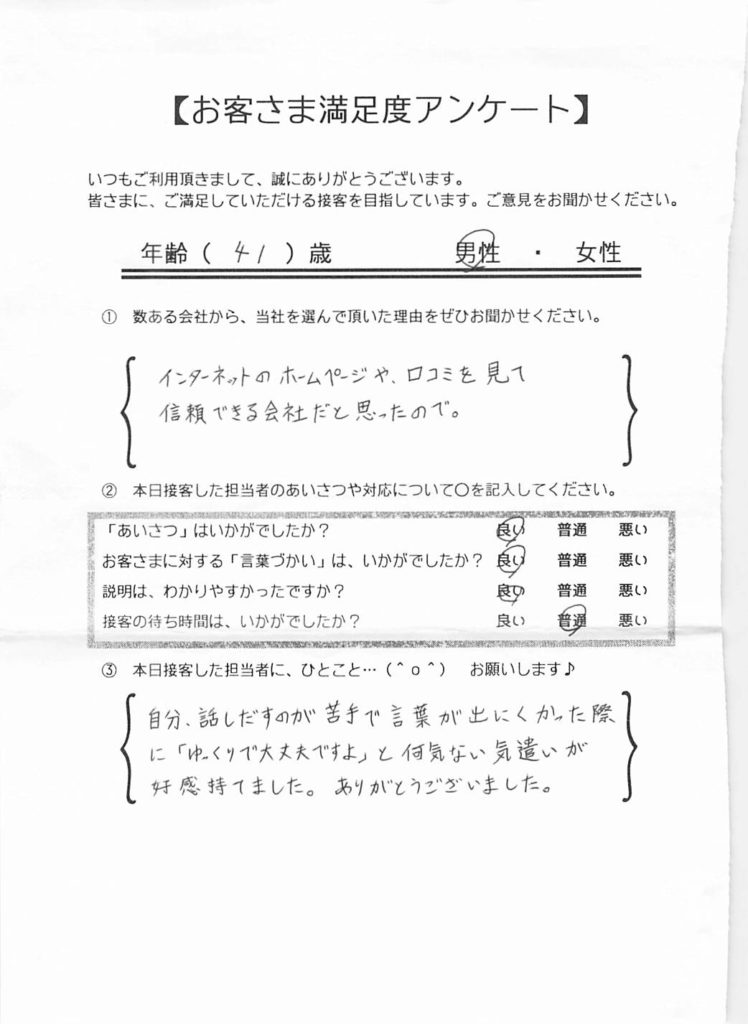 【お客さま満足度アンケート】
いつもご利用頂きまして、誠にありがとうございます。
皆さまに、ご満足していただける接客を目指しています。ご意見をお聞かせください。
年齢（ 41 ）歳 男性 ・ 女性
① 数ある会社から、当社を選んで頂いた理由をぜひお聞かせください。
インターネットのホームページや、口コミを見て
信頼できる会社だと思ったので。
② 本日接客した担当者のあいさつや対応について〇を記入してください。
「あいさつ」はいかがでしたか？ 良い 普通 悪い
お客さまに対する「言葉づかい」は、いかがでしたか？ 良い 普通 悪い
説明は、わかりやすかったですか？ 良い 普通 悪い
接客の待ち時間は、いかがでしたか？ 良い 普通 悪い
③ 本日接客した担当者に、ひとこと…（＾ｏ＾） お願いします♪
自分、話しだすのが苦手で言葉が出にくかった際
に「ゆっくりで大丈夫ですよ」と何気ない気遣いが
好感持てました。ありがとうございました。